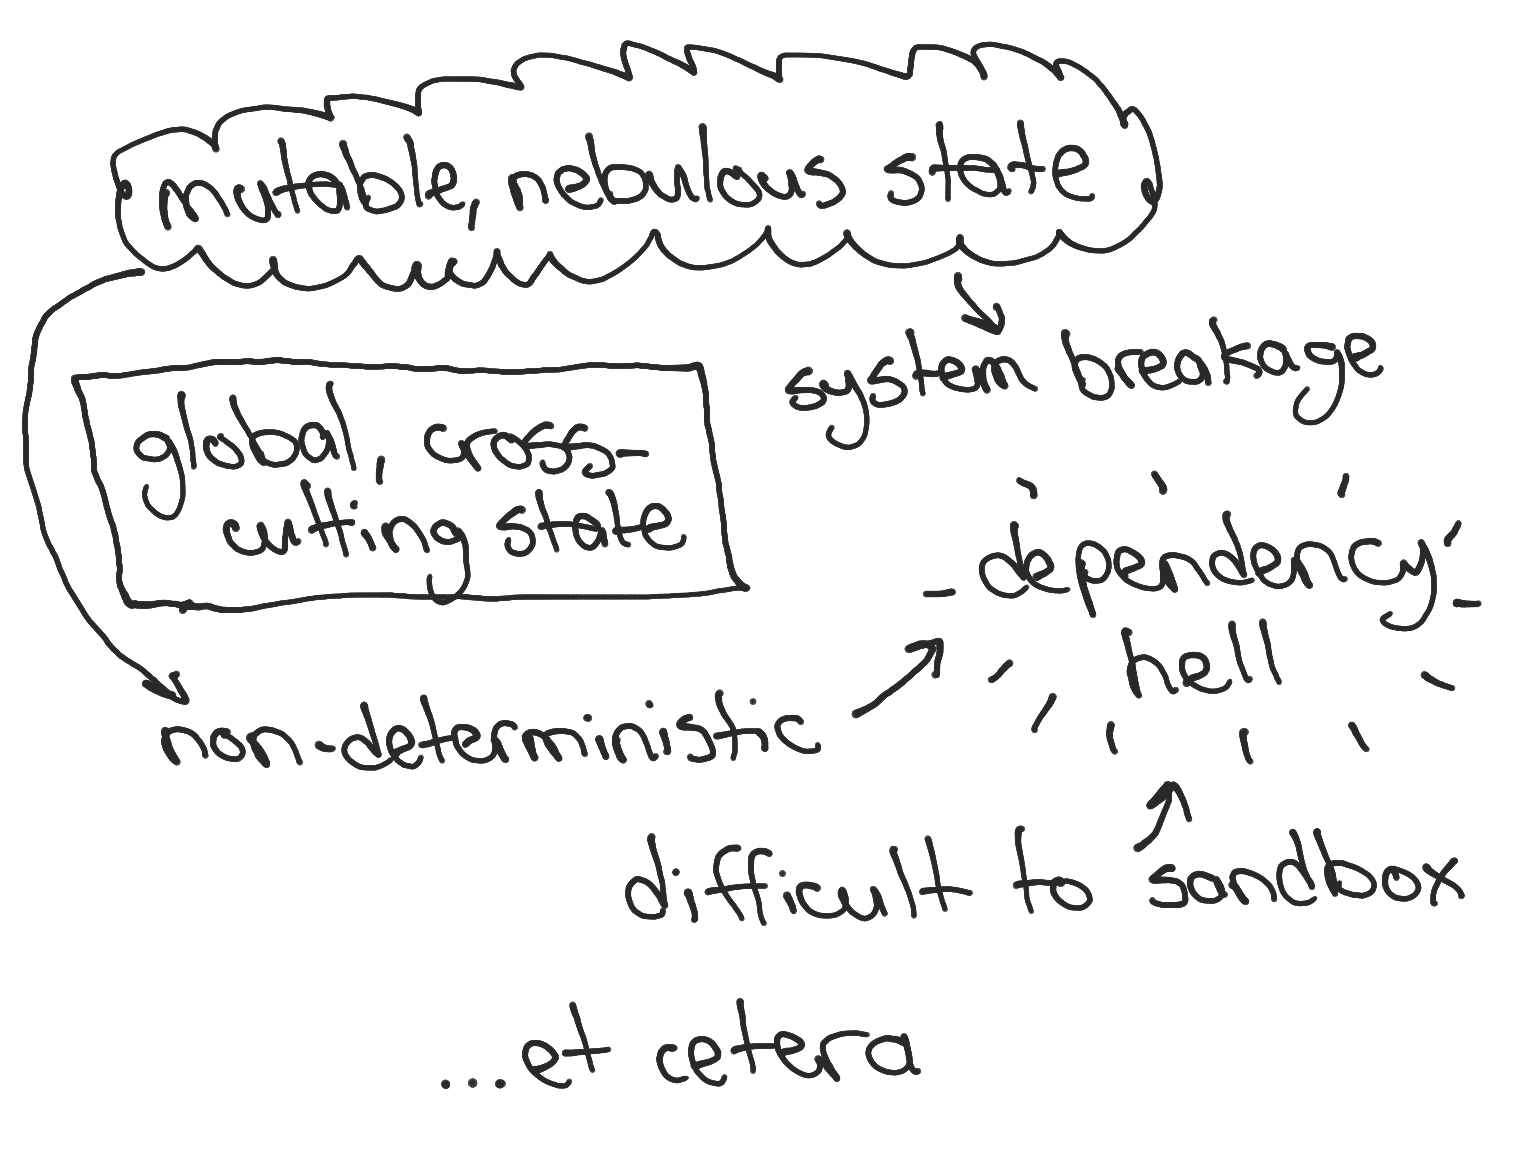 mutable, nebulous state
system breakage
global, cross-
cutting state
dependency
hell
non-deterministic
difficult to sandbox
...et cetera